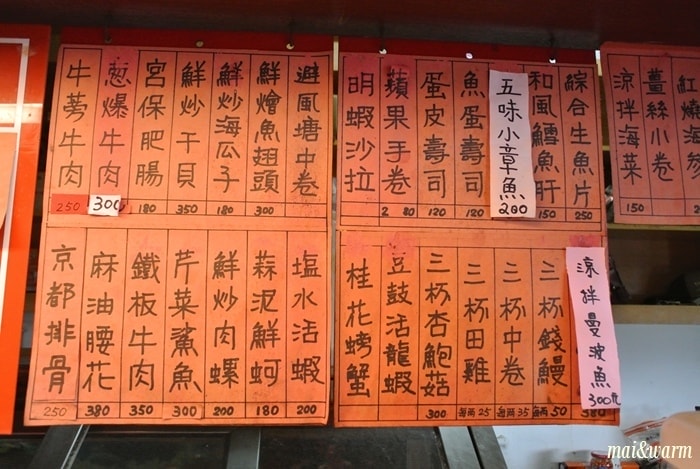 薑絲小卷
150
涼拌海菜
150
綜合生魚片
250
和風鱈魚肝
150
五味小章魚
200
魚蛋壽司
120
蛋皮壽司
120
蘋果手卷
2 80
明蝦沙拉
涼拌曼波魚
300元
380
三杯錢鰻
每兩50
三杯中卷
每兩35
三杯田雞
每兩25
三杯杏鮑菇
300
豆鼓活龍蝦
桂花螃蟹
避風塘中卷
鮮燴魚翅頭
300
鮮炒海瓜子
180
鮮炒干貝
350
宮保肥腸
180
葱爆牛肉
300
牛蒡牛肉
250
塩水活蝦
200
蒜泥鮮蚵
180
鮮炒肉螺
200
芹菜鯊魚
300
鐵板牛肉
350
麻油腰花
380
京都排骨
250
mai&warm